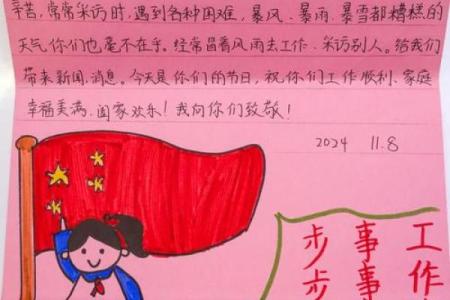 辛苦，常常采访时，遇到各种困难，暴风、暴雨、暴雪都糟糕的
天气，你们也毫不在乎。经常冒着风雨去工作、采访别人。给我们
带来新闻、消息。今天是你们的节日，祝你们工作顺利、家庭
幸福美满、阖家欢乐！我向你们致敬！
2024 11.8
工作
事事
步步